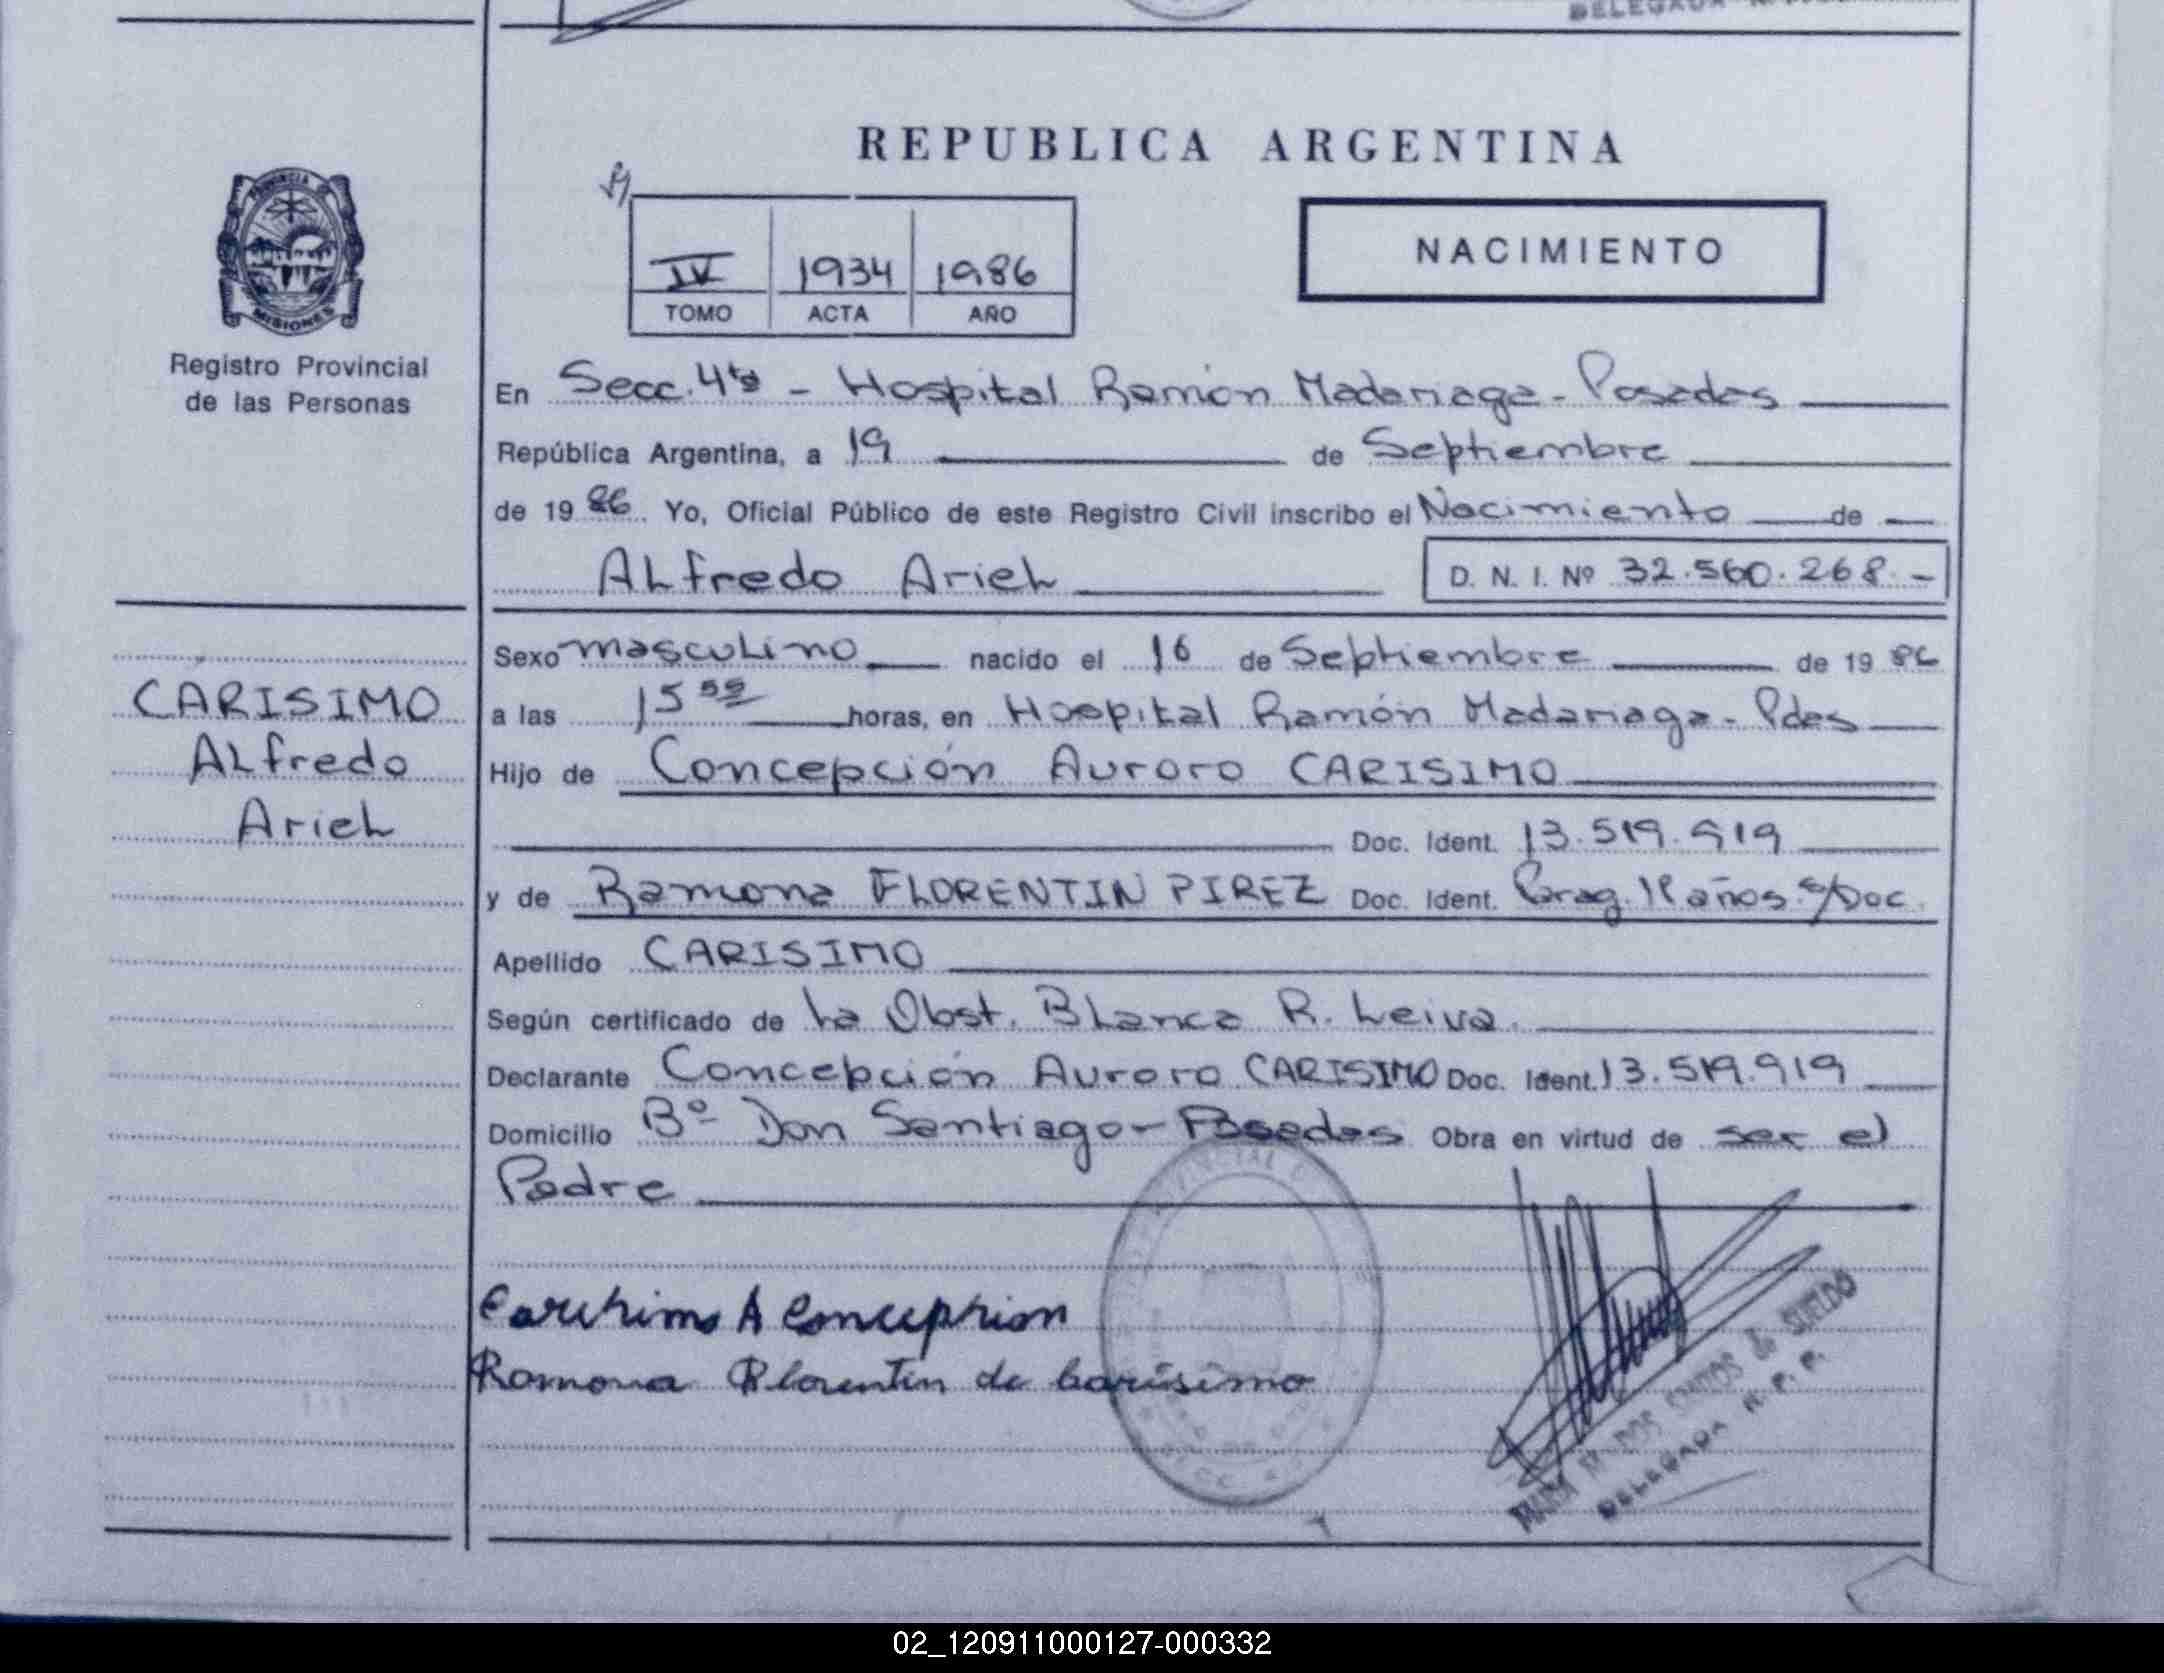 DELEGADA
REPUBLICA ARGENTINA
PROVINCIA DE
MISIONES
Registro Provincial
de las Personas
IV 1934 1986
TOMO ACTA AÑO
NACIMIENTO
En Secc. 4ta - Hospital Ramón Madariaga - Posadas
República Argentina, a 19 de Septiembre
de 19 86 Yo, Oficial Público de este Registro Civil inscribo el Nacimiento de
Alfredo Ariel D. N. I. Nº 32.560.268.-
CARISIMO
Alfredo
Ariel
Sexo masculino nacido el 16 de Septiembre de 19 86
a las 15 55 horas, en Hospital Ramón Madariaga - Pdas
Hijo de Concepción Auroro CARISIMO
Doc. Ident. 13.519.919
y de Ramona FLORENTIN PIREZ Doc. Ident. Parag. 18 años s/Doc.
Apellido CARISIMO
Según certificado de la Obst. Blanca R. Leiva.
Declarante Concepción Auroro CARISIMO Doc. Ident. 13.519.919
Domicilio Bº Don Santiago - Posadas Obra en virtud de ser el
Padre
Carihimo A Concephion
Ramona Florentin de Carísimo
SANTOS de SUELDO
DELEGADA R. P. P.
02_120911000127-000332